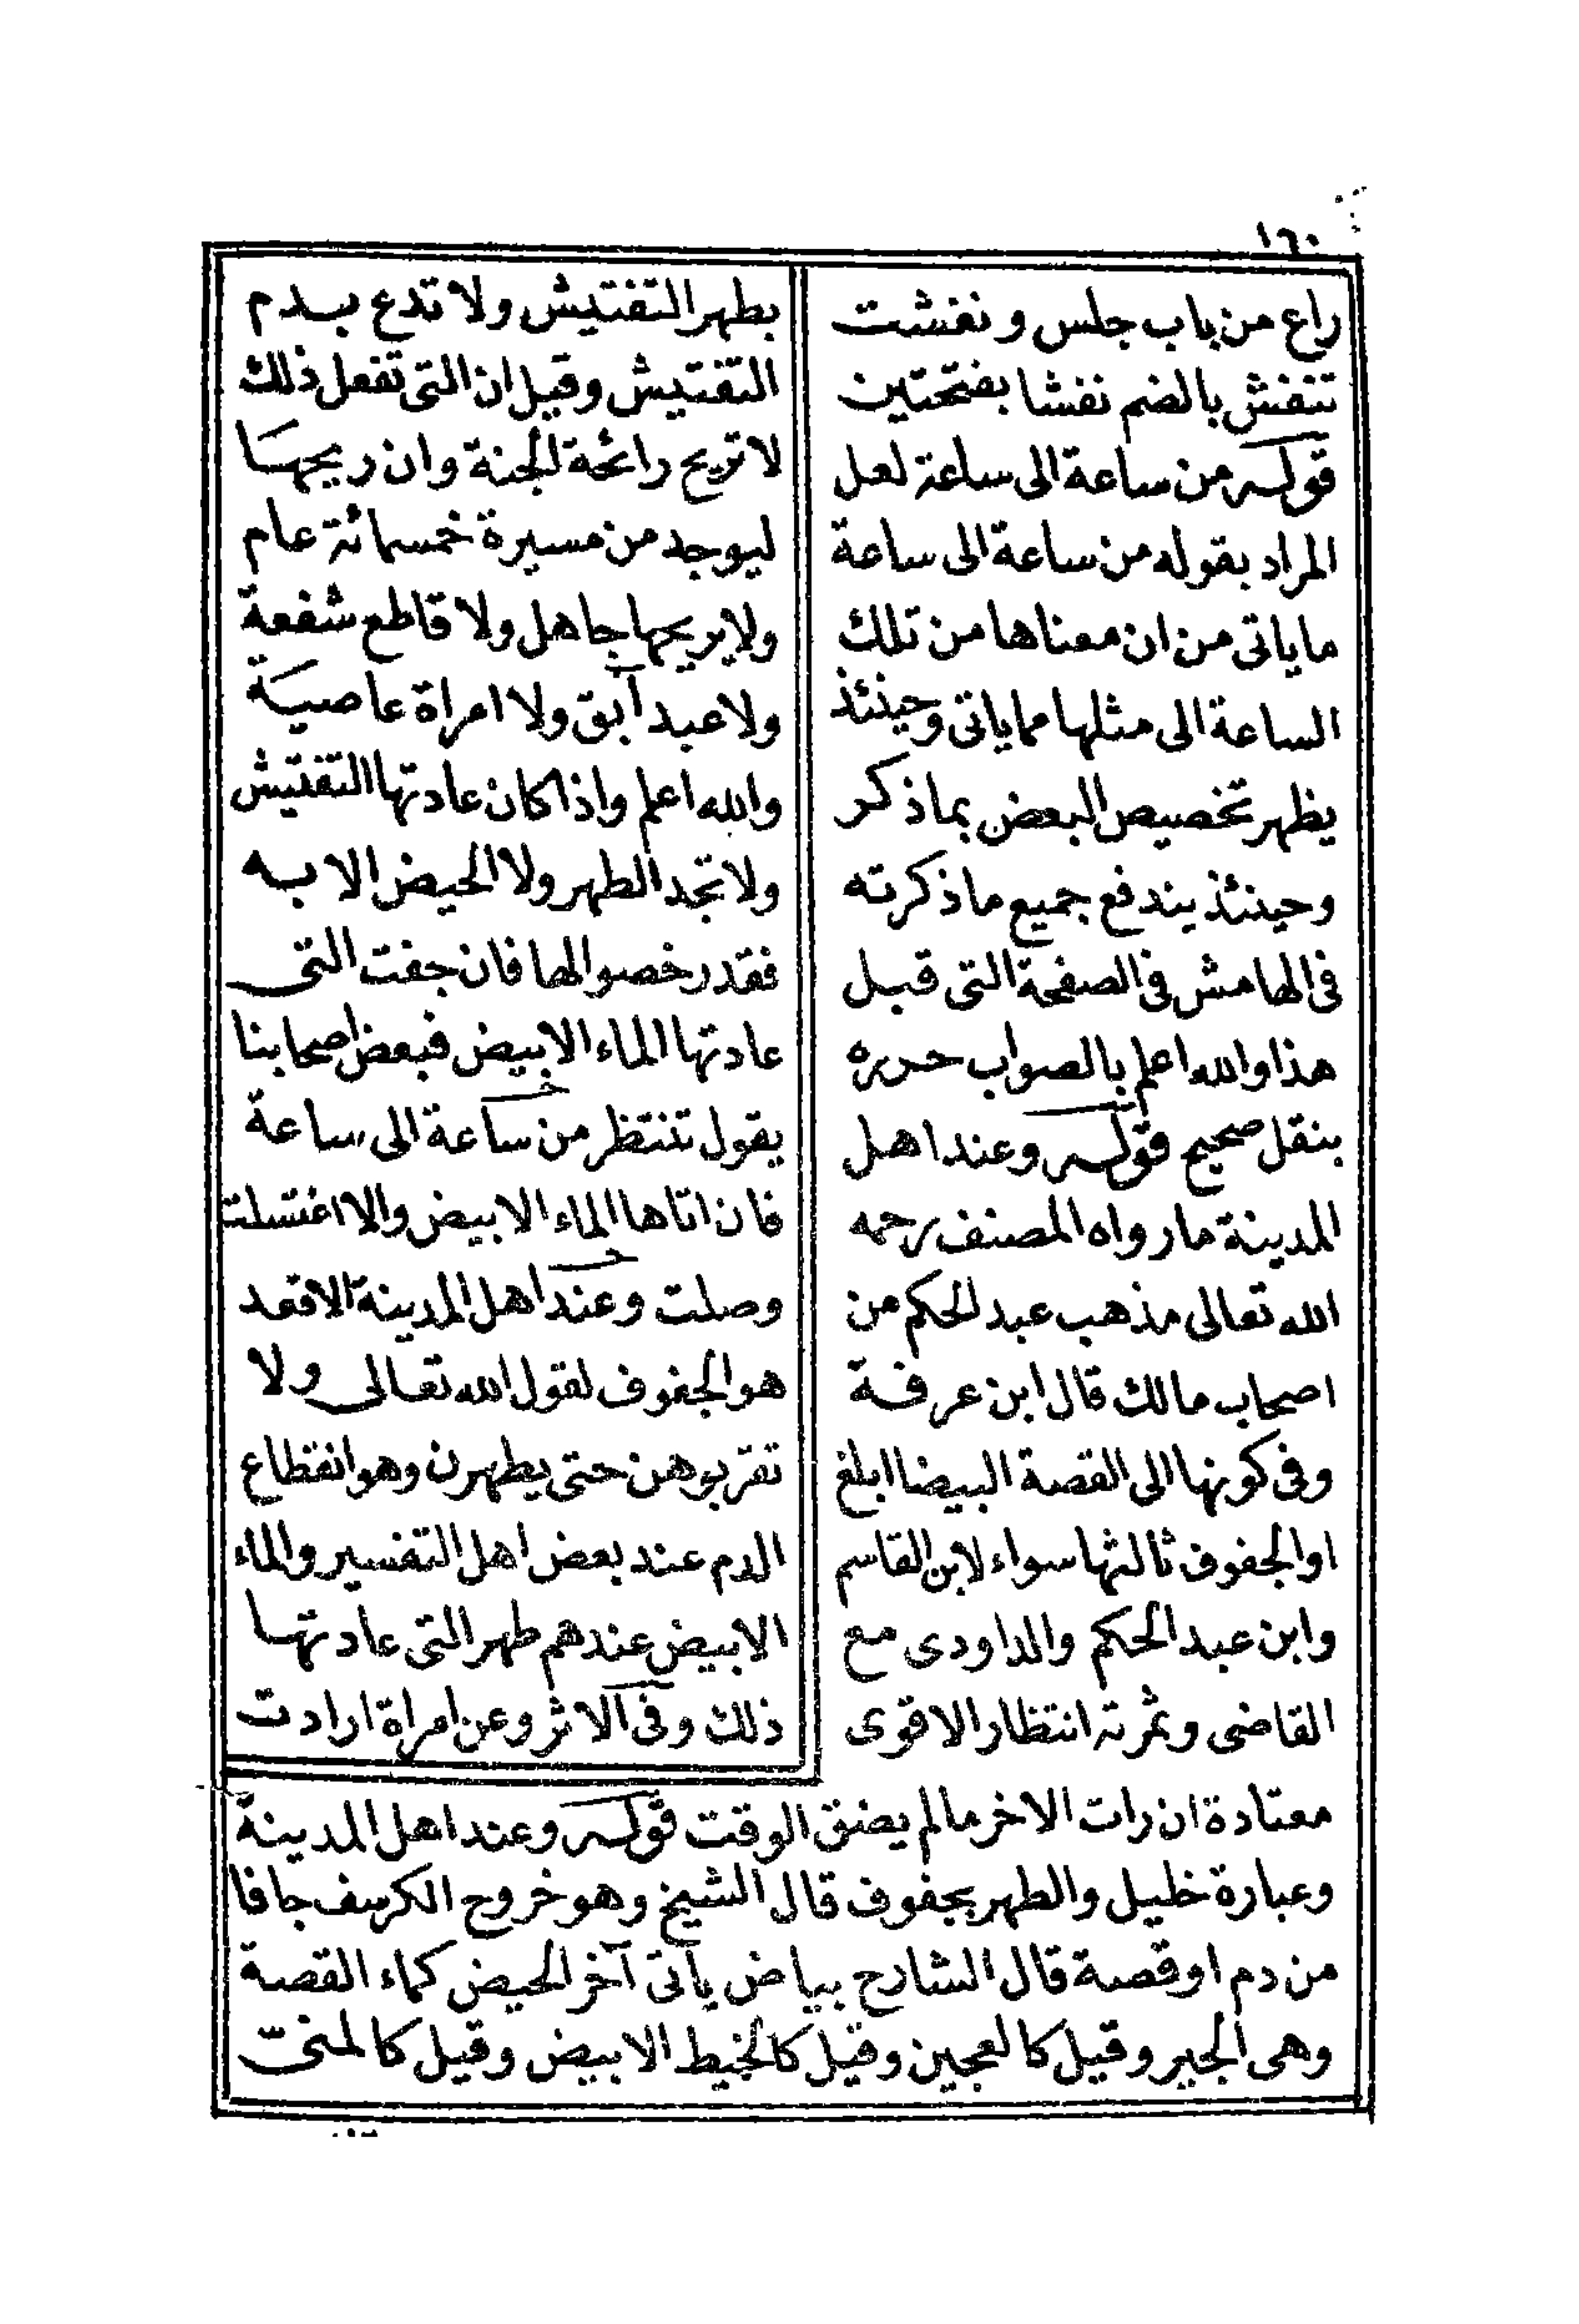 ١٦٠
راع من باب جلس ونفشت
تنفش بالضم نفشا بفتحتين
قوله من ساعة الى ساعة لعل
المراد بقوله من ساعة الى ساعة
ماياتى من ان معناها من تلك
الساعة الى مثلها مماياتى وحينئذ
يظهر تخصيص البعض بماذكر
وحينئذ يندفع جميع ماذكرته
فى الهامش فى الصفحة التى قبل
هذا والله اعلم بالصواب حرره
بنقل صحيح قوله وعند اهل
المدينة مارواه المصنف رحمه
الله تعالى مذهب عبد الحكم من
اصحاب مالك قال ابن عرفة
وفى كونها الى القصة البيضا ابلغ
او الجفوف ثالثها سواء لابن القاسم
وابن عبد الحكم والداودى مع
القاضى وثمرته انتظار الاقوى
بطهر التفتيش ولا تدع بدم
التفتيش وقيل ان التى تفعل ذلك
لا تريح رائحة الجنة وان ريحها
ليوجد من مسيرة خمسمائة عام
ولايريحها جاهل ولا قاطع شفعة
ولا عبد آبق ولا امراة عاصية
والله اعلم واذا كان عادتها التفتيش
ولا تجد الطهر ولا الحيض الا به
فقد رخصوا لها فان جفت التى
عادتها الماء الابيض فبعض اصحابنا
يقول تنتظر من ساعة الى ساعة
فان اتاها الماء الابيض والا اغتسلت
وصلت وعند اهل المدينة الاقعد
هو الجفوف لقول الله تعالى ولا
تقربوهن حتى يطهرن وهو انقطاع
الدم عند بعض اهل التفسير والماء
الابيض عندهم طهر التى عادتها
ذلك وفى الاثر وعن امراة ارادت
معتادة ان رات الاخر مالم يضق الوقت قوله وعند اهل المدينة
وعبارة خليل والطهر بجفوف قال الشيخ وهو خروج الكرسف جافا
من دم او قصة قال الشارح بياض ياتى آخر الحيض كماء القصة
وهى الجير وقيل كالعجين وقيل كالخيط الابيض وقيل كالمنىّ